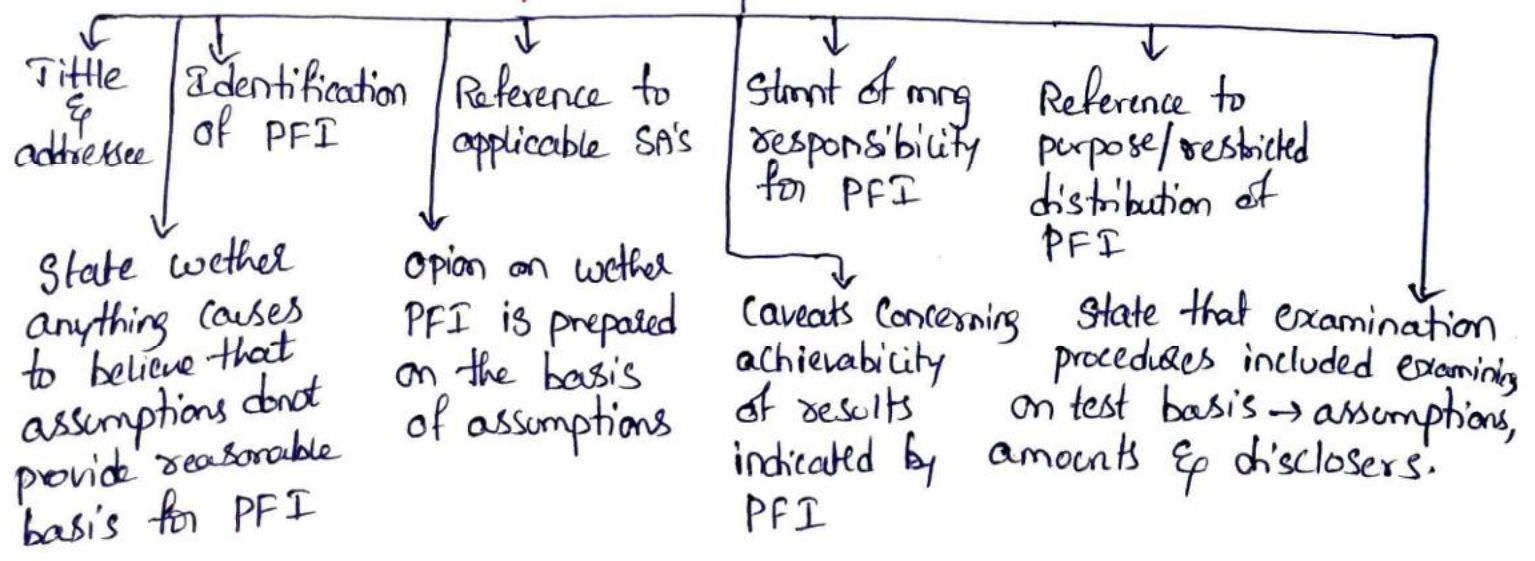 Tittle
&
addressee
Identification
of PFI
Reference to
applicable SA's
Stmnt of mng
responsibility
for PFI
Reference to
purpose/restricted
distribution of
PFI
State wether
anything causes
to believe that
assumptions donot
provide reasonable
basis for PFI
opion on wether
PFI is prepared
on the basis
of assumptions
Caveats Concerning
achievability
of results
indicated by
PFI
State that examination
procedures included examining
on test basis → assumptions,
amounts & disclosers.